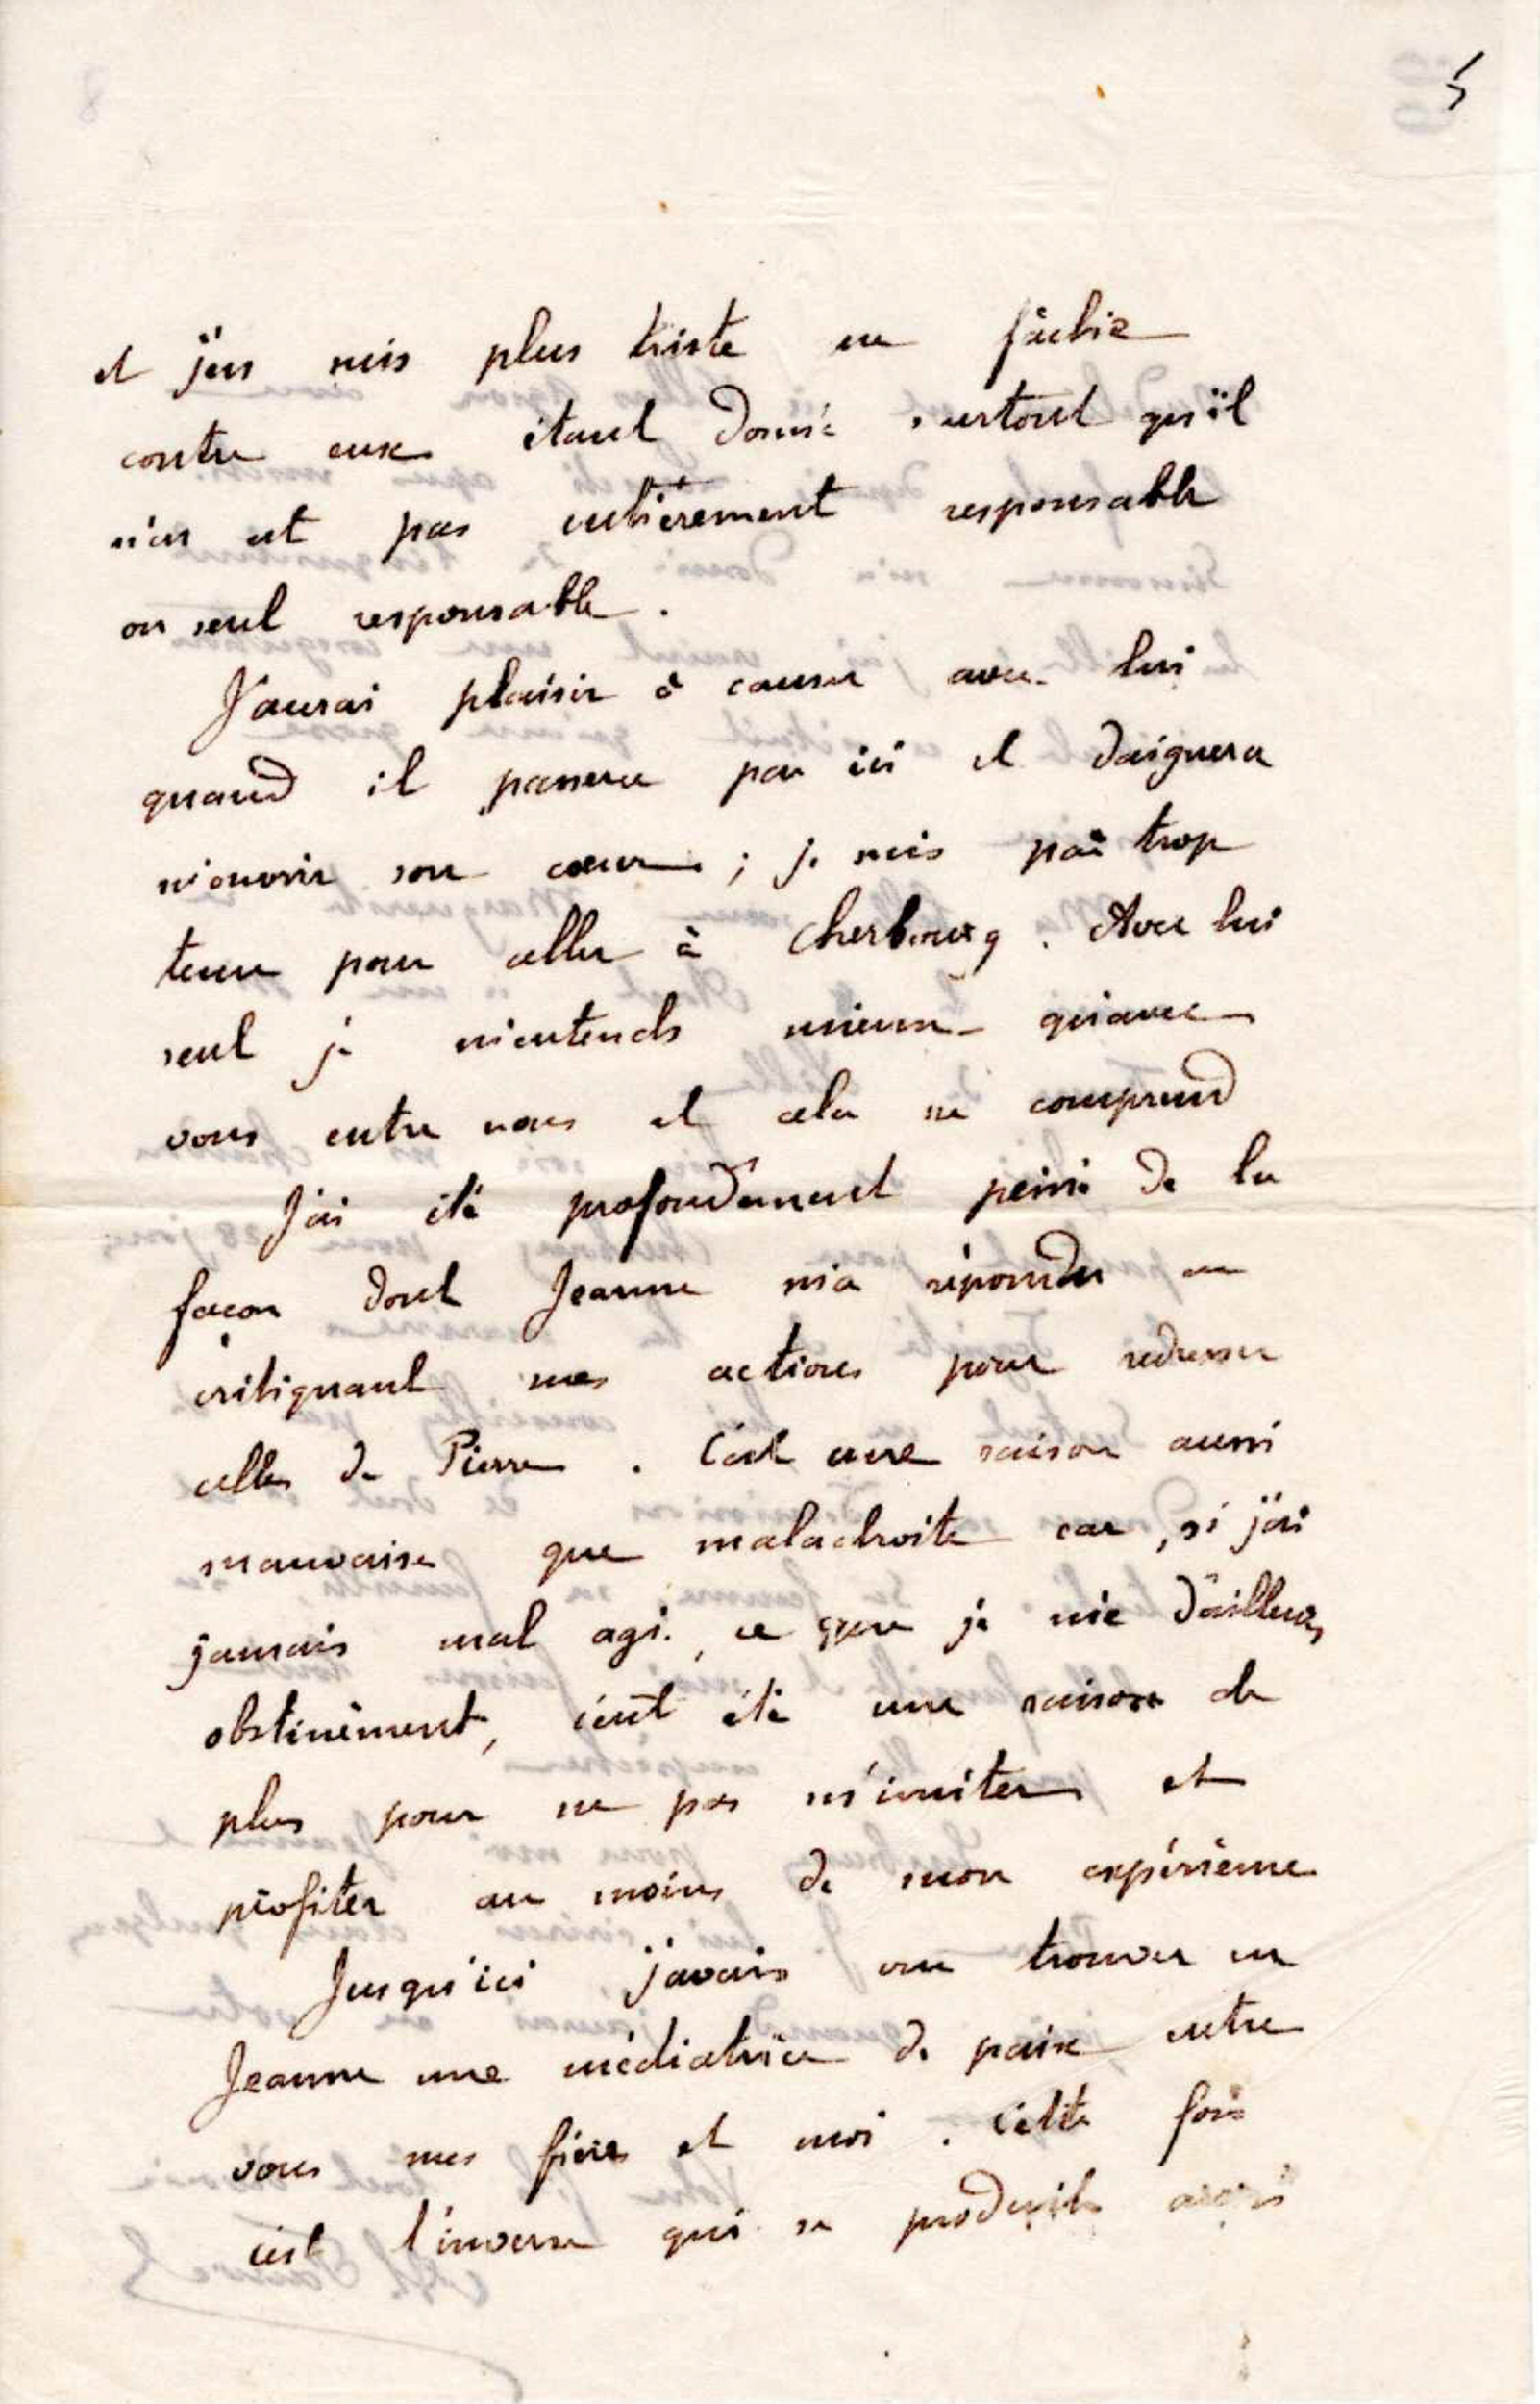 5
et j'en suis plus triste ou fâché
contre eux étant donné surtout qu'il
n'en est pas entièrement responsable
ou seul responsable.
J'aurai plaisir à causer avec lui
quand il passera par ici et daignera
m'ouvrir son cœur ; je suis pas trop
tenu pour aller à Cherbourg. Avec lui
seul je m'entends mieux qu'avec
vous entre nous et cela se comprend
J'ai été profondément peiné de la
façon dont Jeanne m'a répondu en
critiquant mes actions pour redresser
celles de Pierre. C'est une raison aussi
mauvaise que maladroite car, si j'ai
jamais mal agi, ce que je nie d'ailleurs
obstinément, c'eut été une raison de
plus pour ne pas m'imiter et
profiter au moins de mon expérience
Jusqu'ici j'avais cru trouver en
Jeanne une médiatrice de paix entre
vous mes frères et moi. Cette fois
c'est l'inverse qui se produit